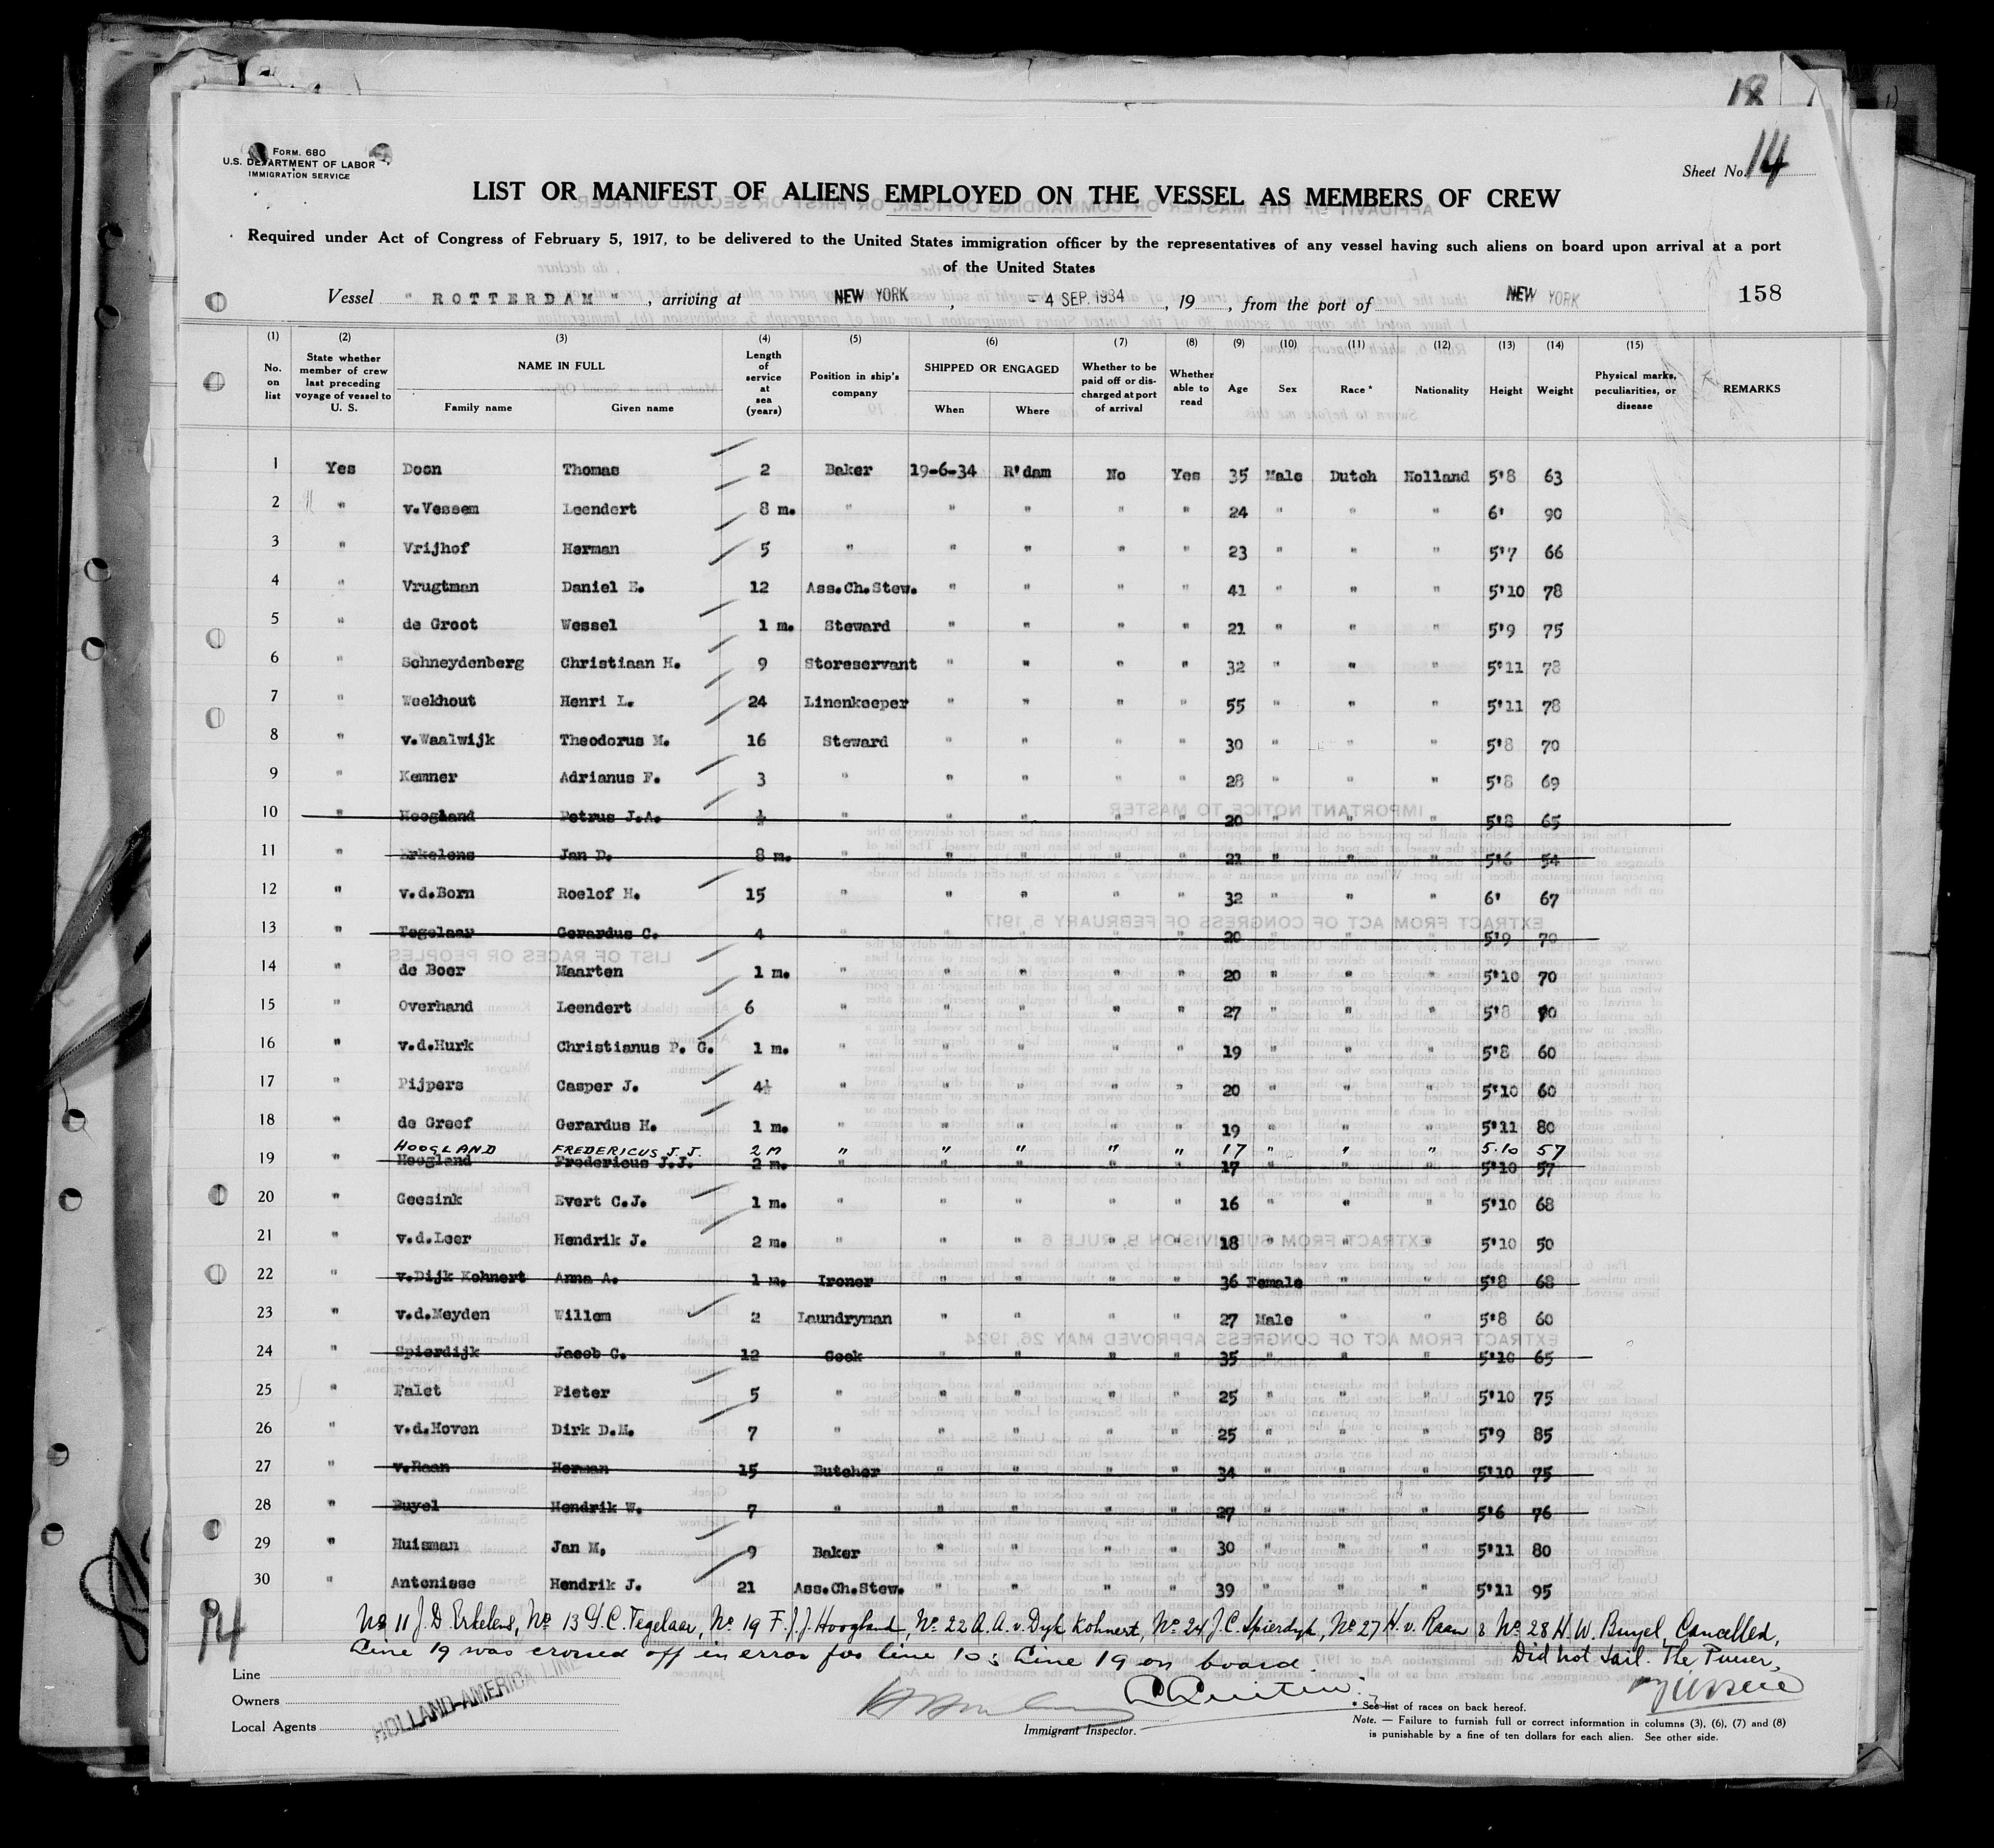 18
FORM. 680
U.S. DEPARTMENT OF LABOR
IMMIGRATION SERVICE
Sheet No. 14
LIST OR MANIFEST OF ALIENS EMPLOYED ON THE VESSEL AS MEMBERS OF CREW
Required under Act of Congress of February 5, 1917, to be delivered to the United States immigration officer by the representatives of any vessel having such aliens on board upon arrival at a port
of the United States
Vessel " ROTTERDAM ", arriving at NEW YORK, - 4 SEP. 1934, 19, from the port of NEW YORK 158
(1) No. on list (2) State whether member of crew last preceding voyage of vessel to U. S. (3) NAME IN FULL Family name Given name (4) Length of service at sea (years) (5) Position in ship's company (6) SHIPPED OR ENGAGED When Where (7) Whether to be paid off or discharged at port of arrival (8) Whether able to read (9) Age (10) Sex (11) Race * (12) Nationality (13) Height (14) Weight (15) Physical marks, peculiarities, or disease REMARKS
1 Yes Doon Thomas 2 Baker 19-6-34 R'dam No Yes 35 Male Dutch Holland 5'8 63
2 " v.Vessem Leendert 8 m. " " " " " 24 " " " 6' 90
3 " Vrijhof Herman 5 " " " " " 23 " " " 5'7 66
4 " Vrugtman Daniel E. 12 Ass.Ch.Stew. " " " " 41 " " " 5'10 78
5 " de Groot Wessel 1 m. Steward " " " " 21 " " " 5'9 75
6 " Schneydenberg Christiaan H. 9 Storeservant " " " " 32 " " " 5'11 78
7 " Weekhout Henri L. 24 Linenkeeper " " " " 55 " " " 5'11 78
8 " v.Waalwijk Theodorus M. 16 Steward " " " " 30 " " " 5'8 70
9 " Kemner Adrianus F. 3 " " " " " 28 " " " 5'8 69
10 " Hoogland Petrus J.A. ½ " " " " " 20 " " " 5'8 65
11 " Erkelens Jan D. 8 m. " " " " " 21 " " " 5'6 54
12 " v.d.Born Roelof H. 15 " " " " " 32 " " " 6' 67
13 " Tegelaar Gerardus C. 4 " " " " " 20 " " " 5'9 70
14 " de Boer Maarten 1 m. " " " " " 20 " " " 5'10 70
15 " Overhand Leendert 6 " " " " " 27 " " " 5'8 70
16 " v.d.Hurk Christianus P. G. 1 m. " " " " " 19 " " " 5'8 60
17 " Pijpers Casper J. 4½ " " " " " 20 " " " 5'10 60
18 " de Greef Gerardus H. 1 m. " " " " " 19 " " " 5'11 80
HOOGLAND FREDERICUS J. J. 2 m " " " " " 17 " " " 5.10 57
19 " Hoogland Fredericus J.J. 2 m. " " " " " 17 " " " 5'10 57
20 " Geesink Evert C.J. 1 m. " " " " " 16 " " " 5'10 68
21 " v.d.Leer Hendrik J. 2 m. " " " " " 18 " " " 5'10 50
22 " v.Dijk Kohnert Anna A. 1 m. Ironer " " " " 36 Female " " 5'8 68
23 " v.d.Meyden Willem 2 Laundryman " " " " 27 Male " " 5'8 60
24 " Spierdijk Jacob C. 12 Cook " " " " 35 " " " 5'10 65
25 " Falet Pieter 5 " " " " " 25 " " " 5'10 75
26 " v.d.Hoven Dirk D.M. 7 " " " " " 25 " " " 5'9 85
27 " v.Raan Herman 15 Butcher " " " " 34 " " " 5'10 75
28 " Buyel Hendrik W. 7 " " " " " 27 " " " 5'6 76
29 " Huisman Jan M. 9 Baker " " " " 30 " " " 5'11 80
30 " Antonisse Hendrik J. 21 Ass.Ch.Stew. " " " " 39 " " " 5'11 95
94
No 11 J. D. Erkelens, No 13 G. C. Tegelaar, No 19 F. J. J. Hoogland, No 22 A. A. v. Dyk Kohnert, No 24 J. C. Spierdyk, No 27 H. v. Raan & No 28 H. W. Buyel, Cancelled,
Did not sail. The Purser,
Line 19 was crossed off in error for line 10; Line 19 on board.
Line
Owners HOLLAND-AMERICA LINE
Local Agents
Immigrant Inspector.
* See list of races on back hereof.
Note. — Failure to furnish full or correct information in columns (3), (6), (7) and (8)
is punishable by a fine of ten dollars for each alien. See other side.